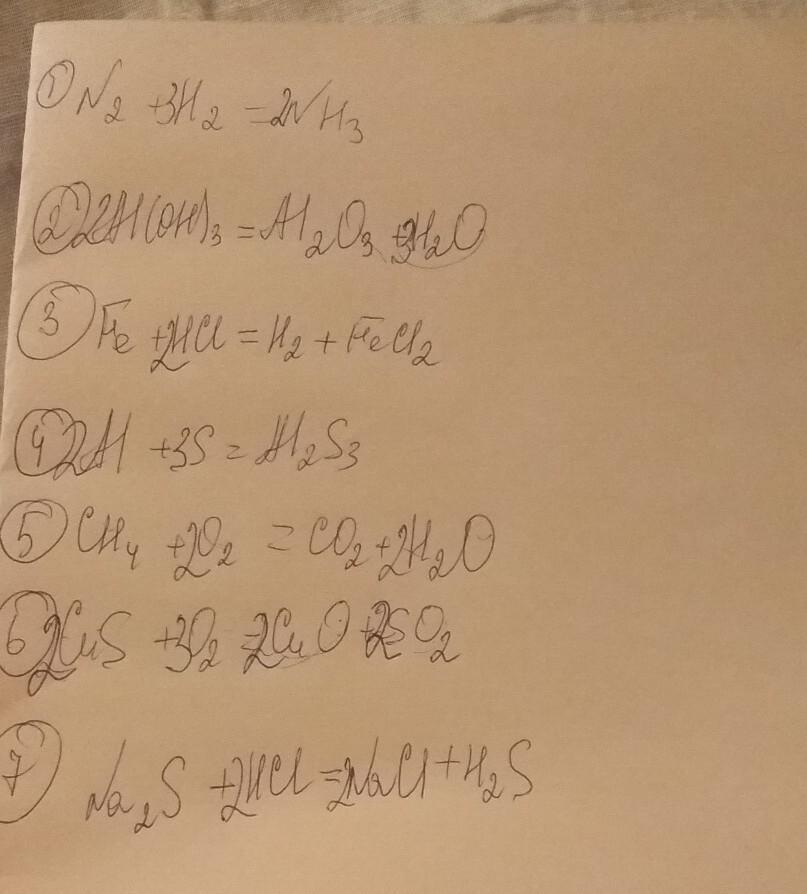 ① N₂ + 3H₂ = 2NH₃
② 2Al(OH)₃ = Al₂O₃ + 3H₂O
③ Fe + 2HCl = H₂ + FeCl₂
④ 2Al + 3S = Al₂S₃
⑤ CH₄ + 2O₂ = CO₂ + 2H₂O
⑥ 2CuS + 3O₂ = 2CuO + 2SO₂
⑦ Na₂S + 2HCl = 2NaCl + H₂S